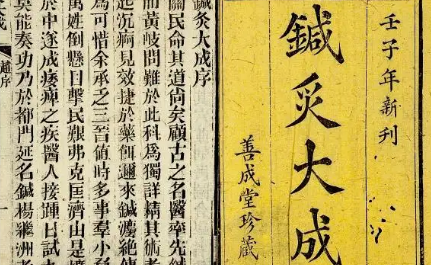 壬子年新刊
鍼灸大成
善成堂珍藏
鍼灸大成序
關民命其道尚矣顧古之名醫率先鍼
而黃岐問難於此科爲獨詳精其術者
起沉疴見效捷於藥餌邇來鍼灋絕傳
爲可惜余承乏三晉值時多事羣小
萬姓倒懸目擊民艱弗克匡濟由是
於中遂成痿痺之疾醫人接踵日試
莫能奏功乃於都門延名鍼楊繼洲者
趙序